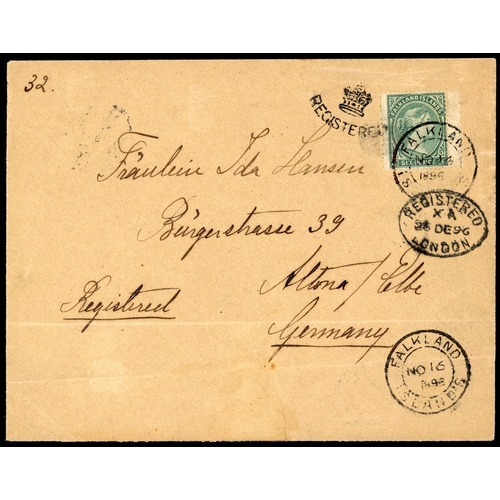 32.
REGISTERED
FALKLAND ISLANDS
SIX PENCE
FALKLAND
ISLANDS
1896
REGISTERED
X A
28 DE 96
LONDON
Fräulein Ida Hansen
Bürgerstrasse 39
Altona/Elbe
Registered
Germany
FALKLAND
NO 16
1896
ISLANDS